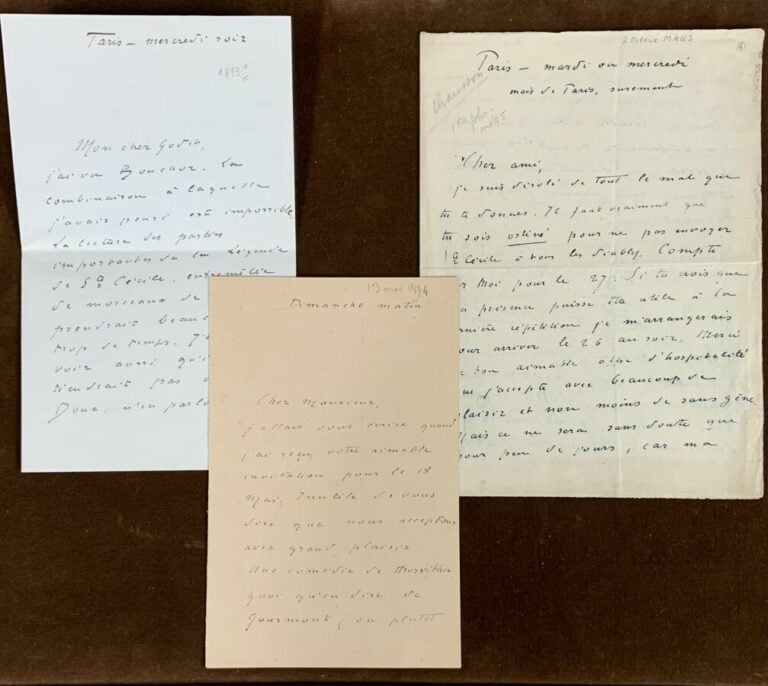 Paris — mercredi soir
1893?
Mon cher Godet,
j'ai vu Bouchor. La
combinaison à laquelle
j'avais pensé est impossible
La lecture des parties
importantes de la Légende
de Ste Cécile, entremêlée
de morceaux de
prendrait beauc
trop de temps.
voir aussi qu'i
tiendrait pas
Donc, n'en parlo
13 mai 1894
Dimanche matin
Cher Monsieur,
j'allais vous écrire quand
j'ai reçu votre aimable
invitation pour le 18
Mai. Inutile de vous
dire que nous acceptons
avec grand plaisir.
Une comédie de Hrosvitha,
quoi qu'en dise de
Gourmont (ou plutôt
Octave MAUS
Paris — mardi ou mercredi
mais de Paris, surement
Chausson
Cher ami,
je suis désolé de tout le mal que
tu te donnes. Il faut vraiment que
tu sois ostiné pour ne pas envoyer
Ste Cécile à tous les diables. Compte
r Moi pour le 27. Si tu crois que
a présence puisse être utile à la
ernière répétition je m'arrangerais
our arriver le 26 au soir. Merci
ton aimable offre d'hospitalité
ue j'accepte avec beaucoup de
plaisir et non moins de sans gêne
Mais ce ne sera sans doute que
pour peu de jours, car ma